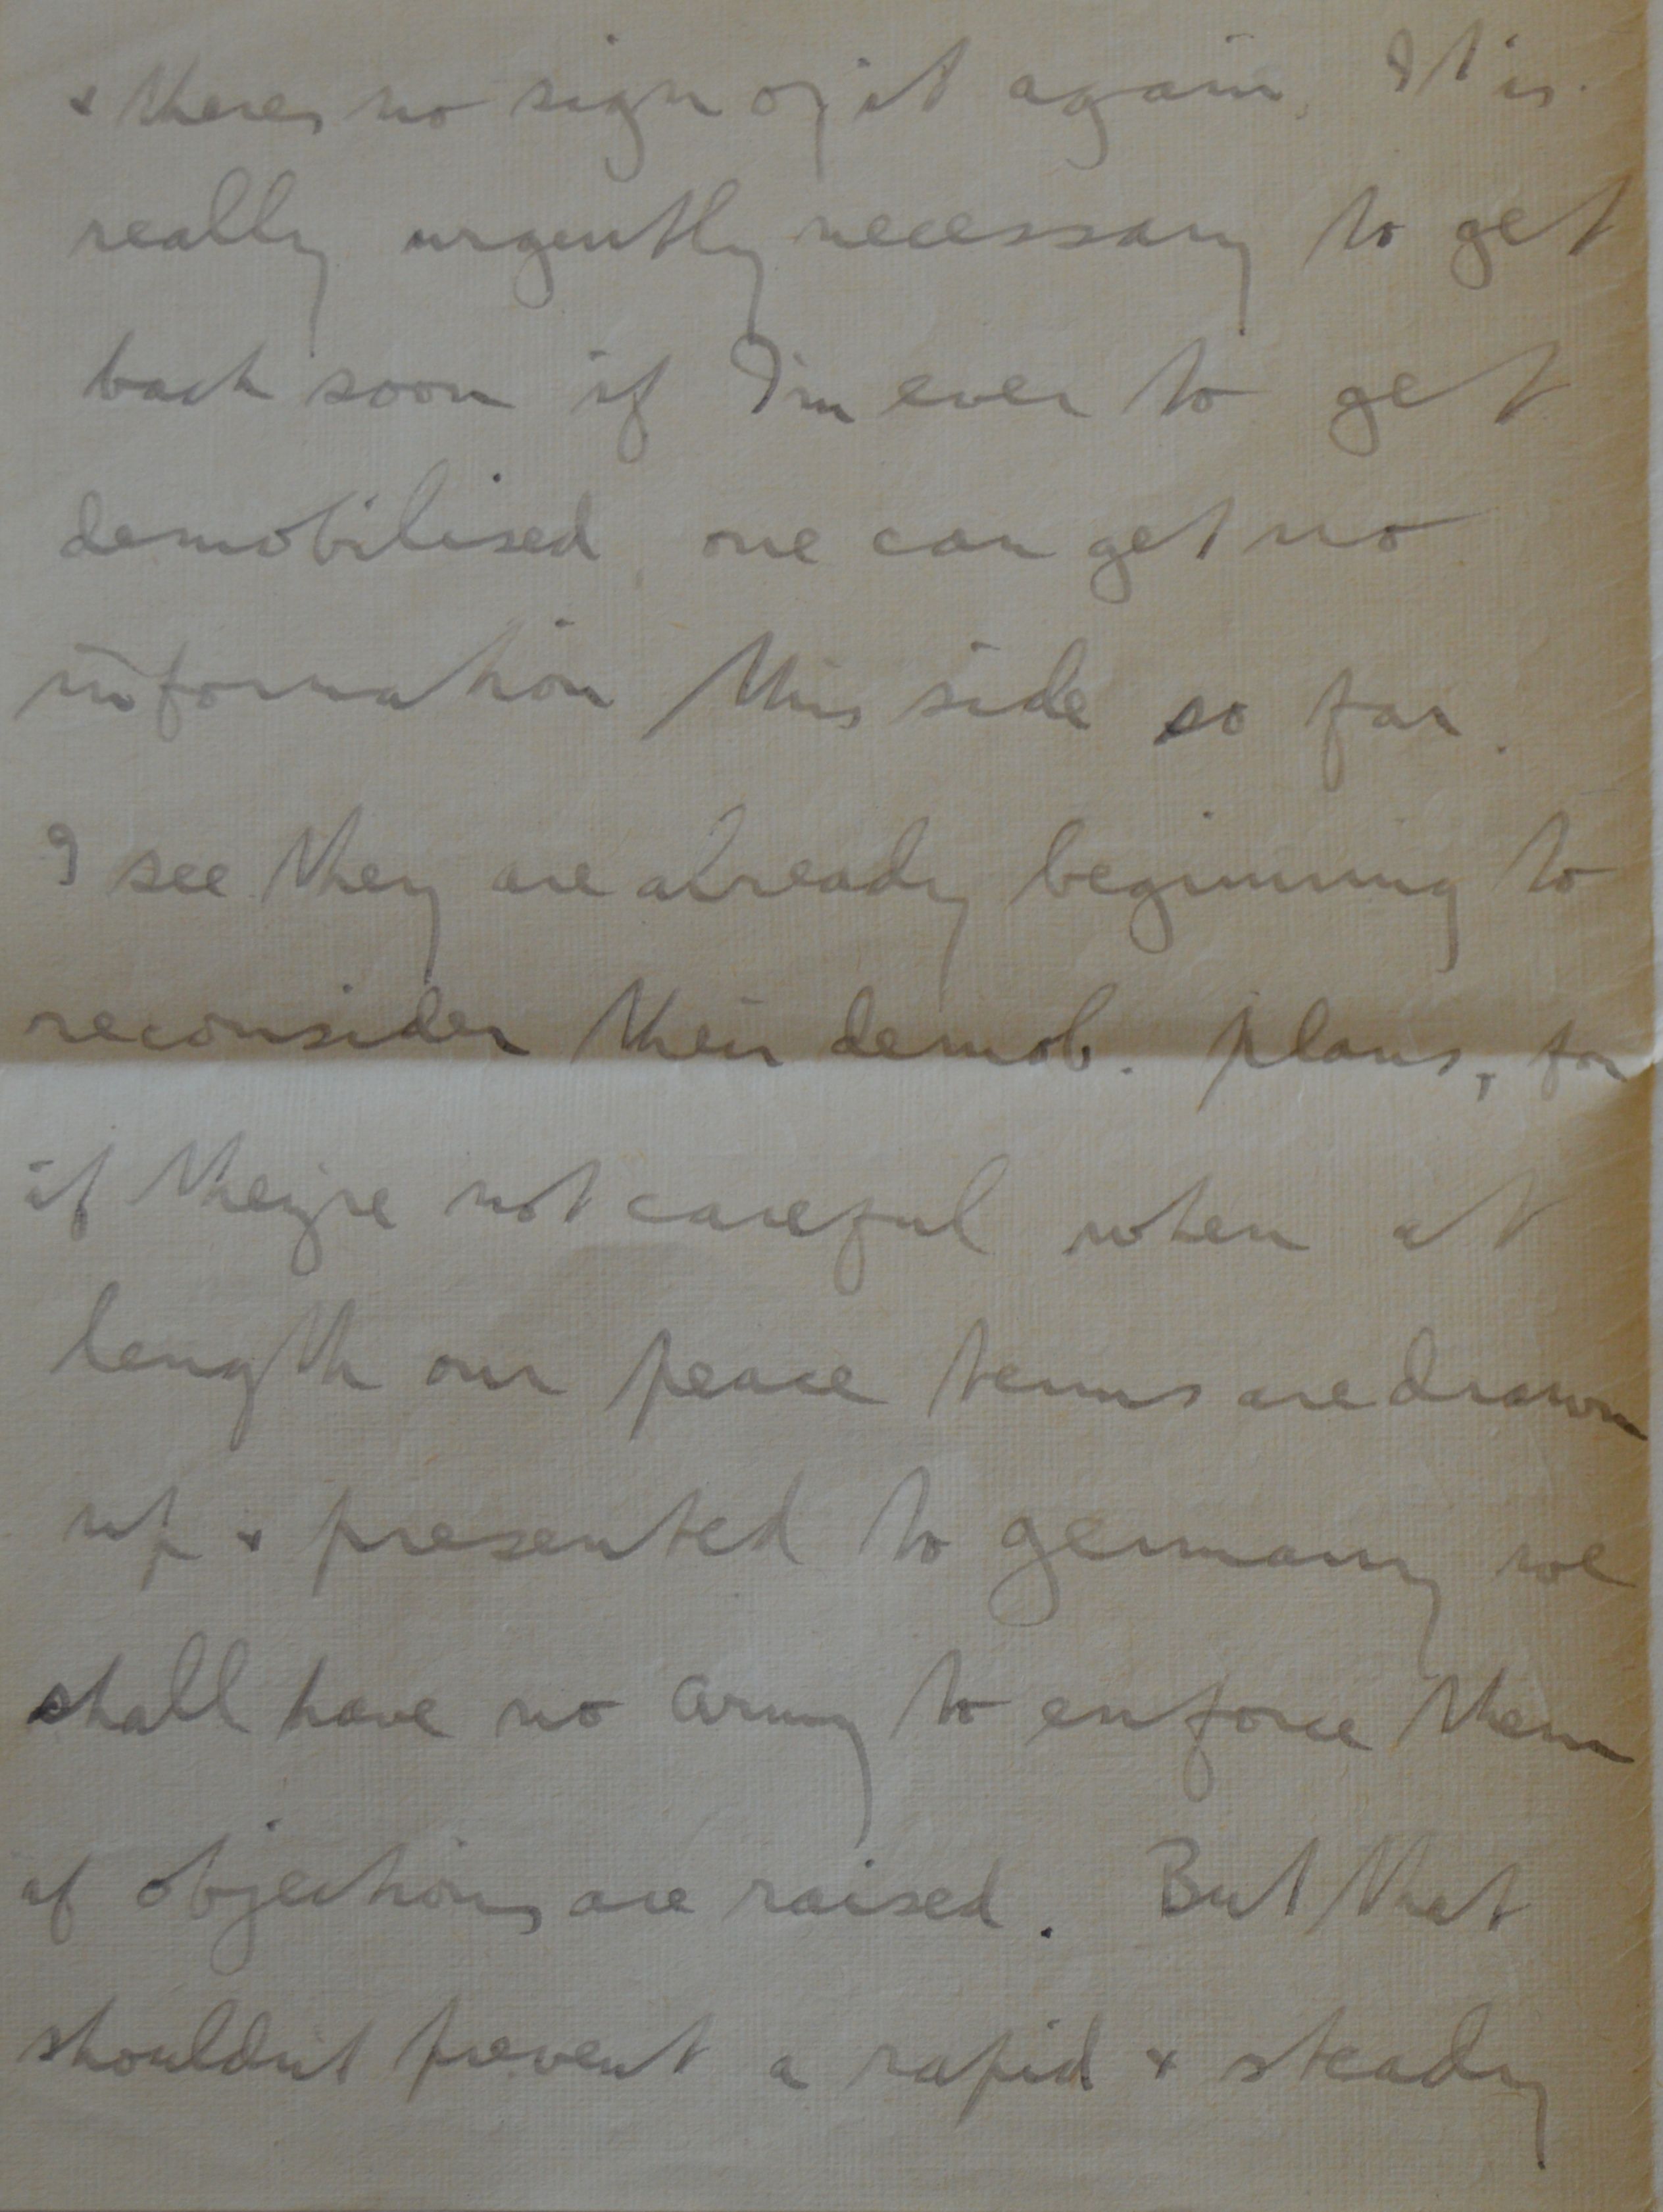 & theres no sign of it again. It is
really urgently necessary to get
back soon if I'm ever to get
demobilised, one can get no
information this side so far.
I see they are already beginning to
reconsider their demob. plans, for
if they're not careful when at
length our peace terms are drawn
up & presented to Germany we
shall have no army to enforce them
if objections are raised. But that
shouldn't prevent a rapid & steady